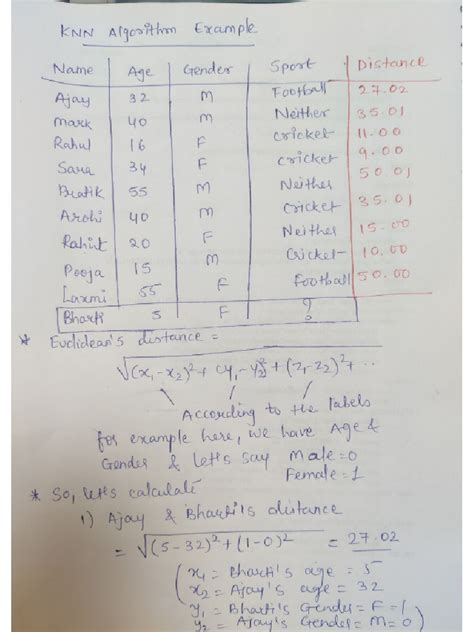 KNN Algorithm Example
Name Age Gender Sport Distance
Ajay 32 M Football 27.02
Mark 40 M Neither 35.01
Rahul 16 F cricket 11.00
Sara 34 F cricket 9.00
Bratik 55 M Neither 50.01
Arohi 40 M Cricket 35.01
Rahit 20 F Neither 15.00
Pooja 15 M Cricket 10.00
Laxmi 55 F Football 50.00
Bharti 5 F ?
* Euclidean's distance =
√(x₁-x₂)²+(y₁-y₂)²+(z₁-z₂)²+...
According to the labels
for example here, we have Age &
Gender & let's say Male=0
Female=1
* So, let's calculate
1) Ajay & Bharti's distance
= √(5-32)²+(1-0)² = 27.02
(x₁ = Bharti's age = 5
x₂ = Ajay's age = 32
y₁ = Bharti's Gender = F = 1
y₂ = Ajay's Gender = M = 0)